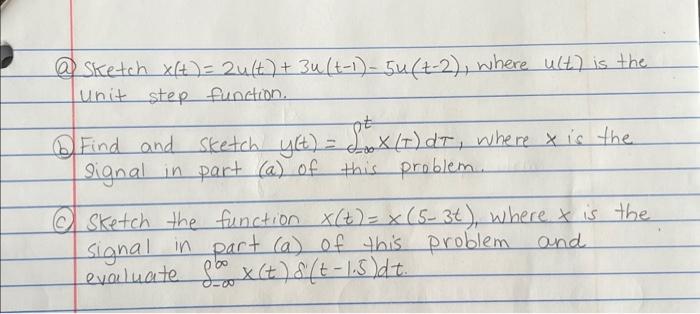 (a) Sketch x(t) = 2u(t) + 3u(t-1) - 5u(t-2), where u(t) is the
unit step function.
(b) Find and sketch y(t) = ∫_{-∞}^{t} x(τ) dτ, where x is the
signal in part (a) of this problem.
(c) Sketch the function x(t) = x(5-3t), where x is the
signal in part (a) of this problem and
evaluate ∫_{-∞}^{∞} x(t) δ(t-1.5) dt.